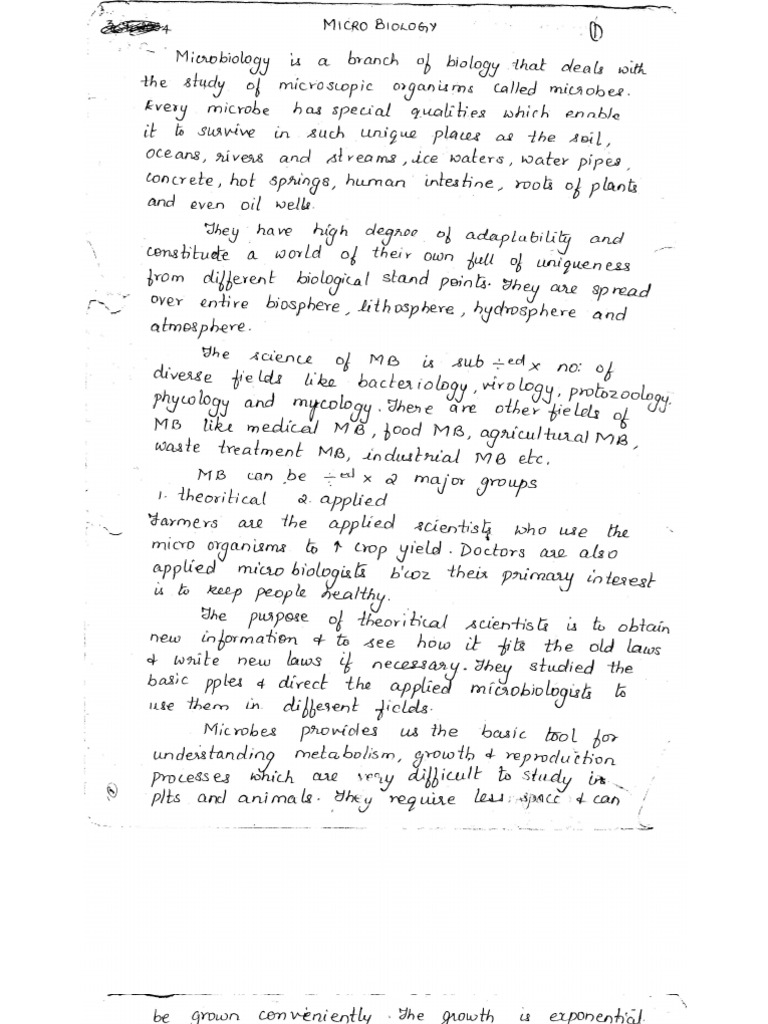 MICRO BIOLOGY
1
4
Microbiology is a branch of biology that deals with
the study of microscopic organisms called microbes.
Every microbe has special qualities which ennble
it to survive in such unique places as the soil,
oceans, rivers and streams, ice waters, water pipes,
concrete, hot springs, human intestine, roots of plants
and even oil wells.
They have high degree of adaplubility and
constitude a world of their own full of uniqueness
from different biological stand points. They are spread
over entire biosphere, lithosphere, hydrosphere and
atmosphere.
The science of MB is sub ÷ed x no: of
diverse fields like bacteriology, virology, protozoology.
phycology and mycology. There are other fields of
MB like medical MB, food MB, agricultural MB,
waste treatment MB, industrial MB etc.
MB can be ÷ed x 2 major groups
1. theoritical 2. applied
Farmers are the applied scientists who use the
micro organisms to ↑ crop yield. Doctors are also
applied micro biologists b'coz their primary interest
is to keep people healthy.
The purpose of theoritical scientists is to obtain
new information & to see how it fits the old laws
& write new laws if necessary. They studied the
basic pples & direct the applied microbiologists to
use them in different fields.
Microbes provides us the basic tool for
understanding metabolism, growth & reproduction
processes which are very difficult to study in
plts and animals. They require less space & can
be grown conveniently. The growth is exponential.